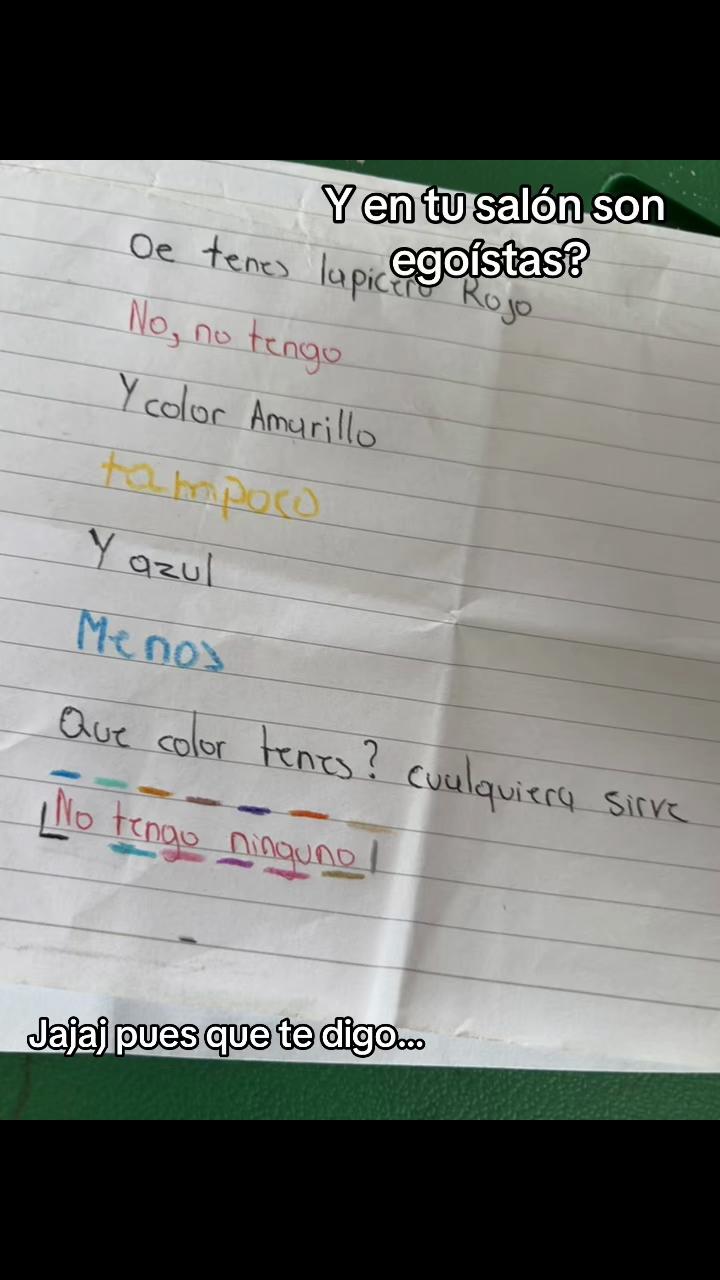 Y en tu salón son
egoístas?
Oe tenes lapicero Rojo
No, no tengo
Y color Amarillo
tampoco
Y azul
Menos
Que color tenes? cualquiera sirve
No tengo ninguno
Jajaj pues que te digo...